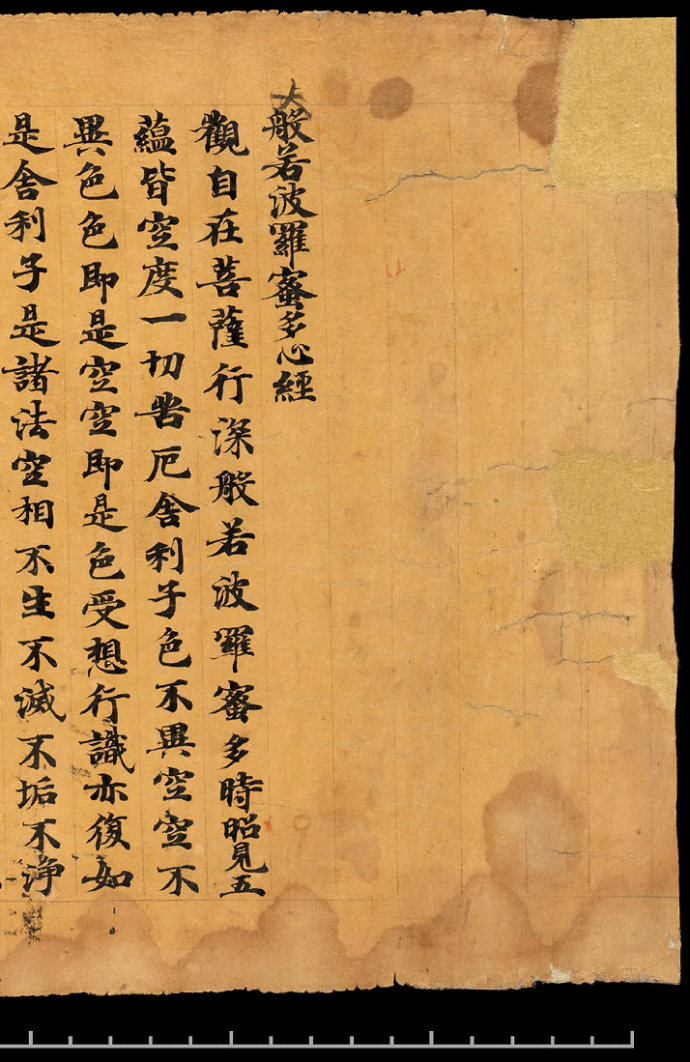 大般若波羅蜜多心經
觀自在菩薩行深般若波羅蜜多時昭見五
蘊皆空度一切苦厄舍利子色不異空空不
異色色即是空空即是色受想行識亦復如
是舍利子是諸法空相不生不滅不垢不淨